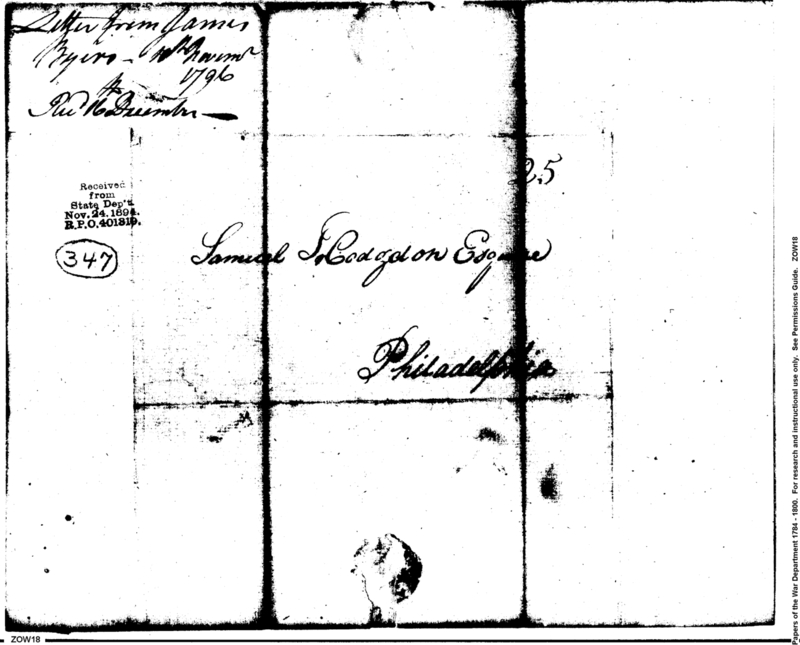 Letter from James
Byers - 10th Novemr
1796
Recd 16th December
25
Received
from
State Dep't.
Nov. 24. 1894.
R.P.O. 401319.
347
Samuel Hodgdon Esquire
Philadelphia
ZOW18
Papers of the War Department 1784 - 1800. For research and instructional use only. See Permissions Guide. ZOW18